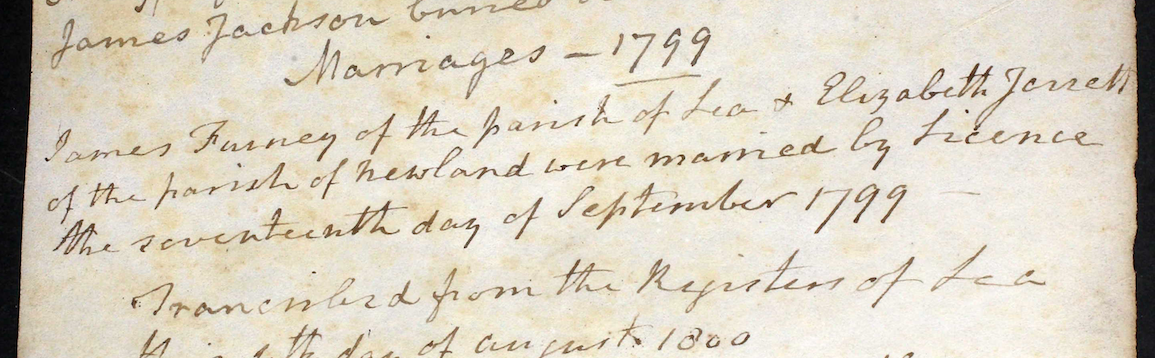 James Jackson buried
Marriages – 1799
James Furney of the parish of Lea & Elizabeth Jarrett
of the parish of Newland were married by Licence
the seventeenth day of September 1799 –
Transcribed from the Registers of Lea
day of august 1800